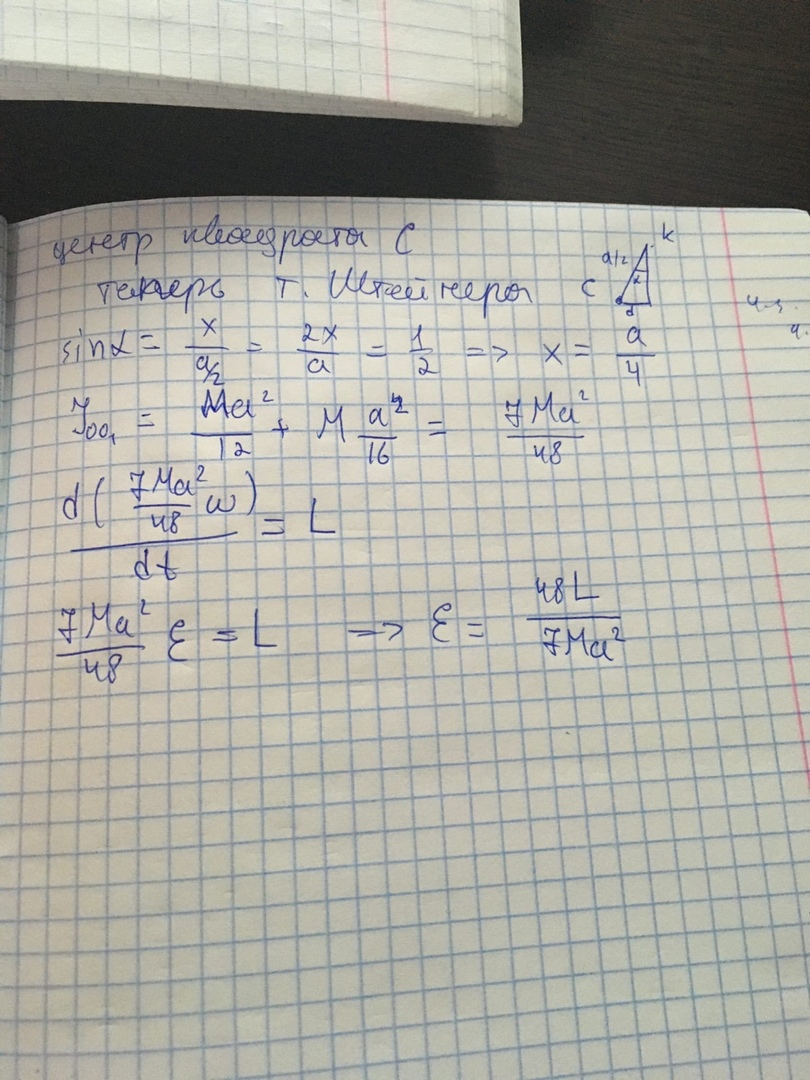 центр квадрата С
теперь т. Штейнера C a/2 α d K
sinα = x / a/2 = 2x / a = 1/2 => x = a/4
J_OO₁ = Ma²/12 + M a²/16 = 7Ma²/48
d(7Ma²/48 ω) / dt = L
7Ma²/48 ε = L => ε = 48L / 7Ma²